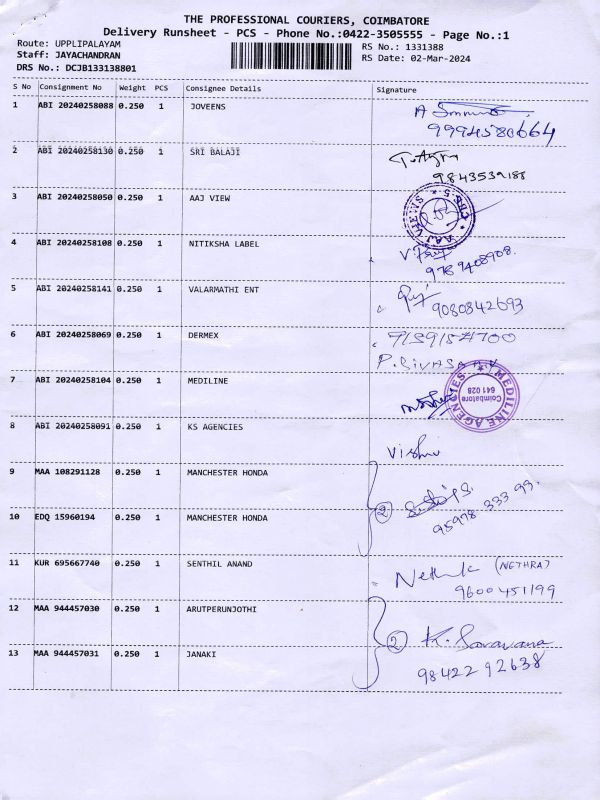 THE PROFESSIONAL COURIERS, COIMBATORE
Delivery Runsheet - PCS - Phone No.:0422-3505555 - Page No.:1
Route: UPPLIPALAYAM
Staff: JAYACHANDRAN
DRS No.: DCJB133138801
RS No.: 1331388
RS Date: 02-Mar-2024
S No Consignment No Weight PCS Consignee Details Signature
1 ABI 20240258088 0.250 1 JOVEENS
9994580664
2 ABI 20240258130 0.250 1 SRI BALAJI
9843539188
3 ABI 20240258050 0.250 1 AAJ VIEW
AAJ VIEWS
4 ABI 20240258108 0.250 1 NITIKSHA LABEL
9789408908.
5 ABI 20240258141 0.250 1 VALARMATHI ENT
9080842693
6 ABI 20240258069 0.250 1 DERMEX
7 ABI 20240258104 0.250 1 MEDILINE
MEDILINE AGENCIES
Coimbatore
641 028
8 ABI 20240258091 0.250 1 KS AGENCIES
9 MAA 108291128 0.250 1 MANCHESTER HONDA
2
95978 333 93.
10 EDQ 15960194 0.250 1 MANCHESTER HONDA
11 KUR 695667740 0.250 1 SENTHIL ANAND
(NETHRA)
9600451199
12 MAA 944457030 0.250 1 ARUTPERUNJOTHI
2 K. Saravana
98422 92638
13 MAA 944457031 0.250 1 JANAKI